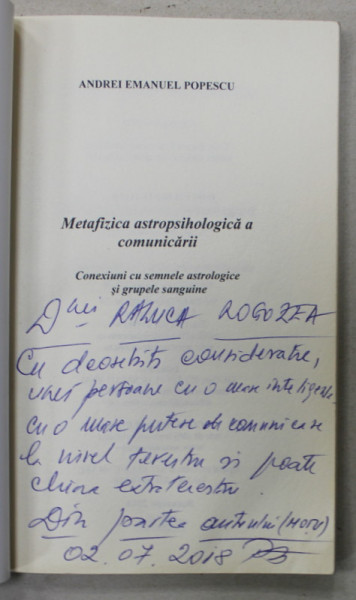 ANDREI EMANUEL POPESCU
Metafizica astropsihologică a
comunicării
Conexiuni cu semnele astrologice
și grupele sanguine
Dnei RALUCA ROGOZEA
Cu deosebită considerație,
unei persoane cu o mare inteligență
cu o mare putere de comunicare
la nivel terestru și poate
chiar extraterestru.
Din partea autorului
02.07.2018